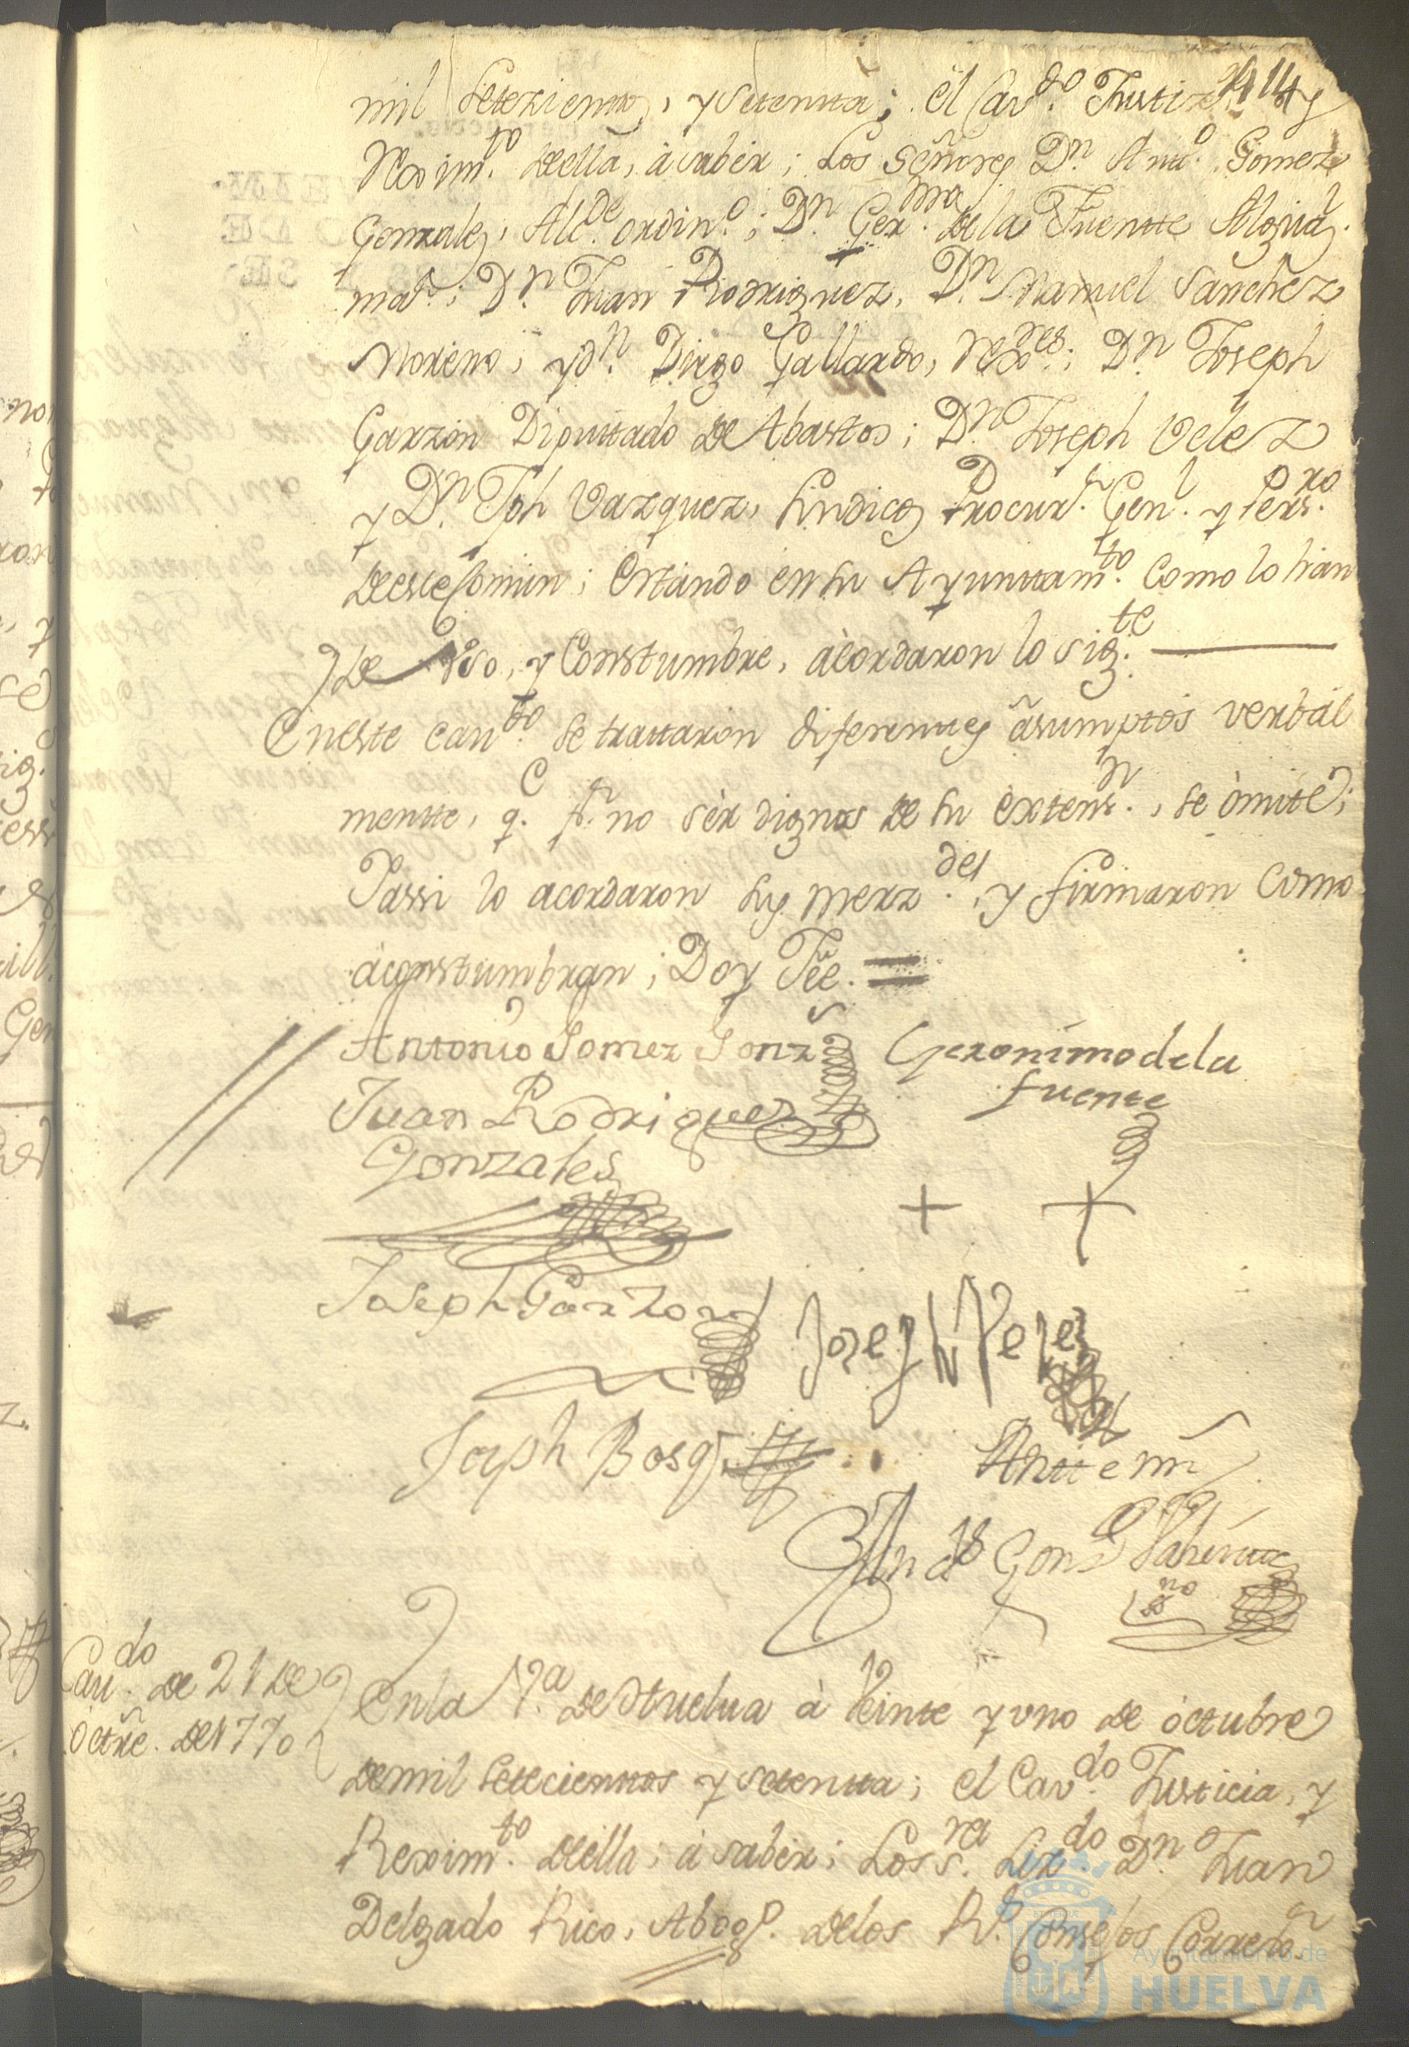 mil Setezientos, y Setentta; el Cavdo. Justizia y
Reximto. della, à saber; Los Señores Dn. Anto. Gomez
Gonzalez, Alcde. ordino.; Dn. Germo. de la Fuentte Alguaz.l
mar.; Dn. Juan Rodriguez, Dn. Manuel Sanchez
Moreno, y dn. Diego Gallardo, Rexres.; Dn. Joseph
Garzon Diputtado de Abastos; Dn. Joseph Velez
y Dn. Jph Vazquez, Sindicos Procurr. Genl. y Persro.
de este Comun; Estando en su Ayunttamto. Como lo han
de Vso, y Constumbre, acordaron lo sigte.
En este cavdo. se trattaron diferenttes àsumptos verbal
mentte, qe. pr. no sèr dignos de su extensn., se òmite;
Yassi lo acordaron sus merzdes., y firmaron Como
àconstumbran; Doy Fèe. =
Antonio Gomez Gonzs Geronimo de la
fuente
Juan Rodriguez
Gonzales
+ +
Joseph Garzon Joseph Velez
Joseph Bosq
Antte mi
Gonz
sno
Cavdo. de 21 de
Octre. de 1770
En la Va. de Huelua à Veinte y uno de òctubre
de mil Setecienttos y Setentta; el Cavdo. Justicia, y
Reximto. della, à saber; Los sres. Lizdo. Dn. Juan
Delgado Rico, Abogo. de los Rs. Consejos Correxor
Ayuntamiento de
HUELVA